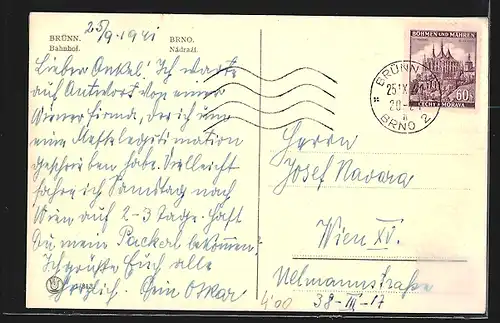 25/9.1941
BRÜNN. BRNO.
Bahnhof. Nádraží.
Lieber Onkel! Ich warte
auf Antwort von einer
Wiener Firma, der ich um
eine Messlegitimation
geschrieben habe. Vielleicht
fahre ich Samstag nach
Wien auf 2-3 Tage. Hast
Du mein Packerl bekommen?
Ich grüße Euch alle
herzlich. Dein Oskar
BÖHMEN UND MÄHREN
60
ČECHY A MORAVA
BRÜNN 2
25.IX.41
20-21
BRNO 2
Herrn
Josef Navara
Wien XV.
Uelmannstraße
38-III-17
4'00